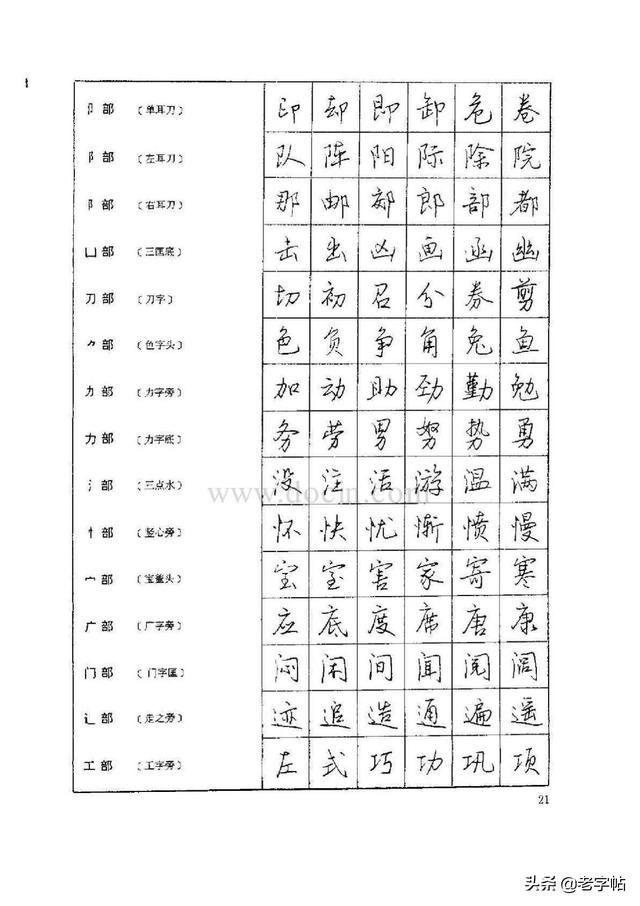 卩部 (单耳刀) 印 却 即 卸 危 卷
阝部 (左耳刀) 队 阵 阳 际 除 院
阝部 (右耳刀) 那 邮 郊 郎 部 都
凵部 (三匡底) 击 出 凶 画 函 幽
刀部 (刀字) 切 初 召 分 券 剪
⺈部 (色字头) 色 负 争 角 兔 鱼
力部 (力字旁) 加 动 助 劲 勤 勉
力部 (力字底) 务 劳 男 努 势 勇
氵部 (三点水) 没 注 活 游 温 满
忄部 (竖心旁) 怀 快 忧 惭 愤 慢
宀部 (宝盖头) 宝 室 害 家 寄 寒
广部 (广字旁) 应 底 度 席 唐 康
门部 (门字匡) 闷 闲 间 闻 阅 阔
辶部 (走之旁) 迹 追 造 通 遍 遥
工部 (工字旁) 左 式 巧 功 巩 项
www.docin.com
21
头条 @老字帖